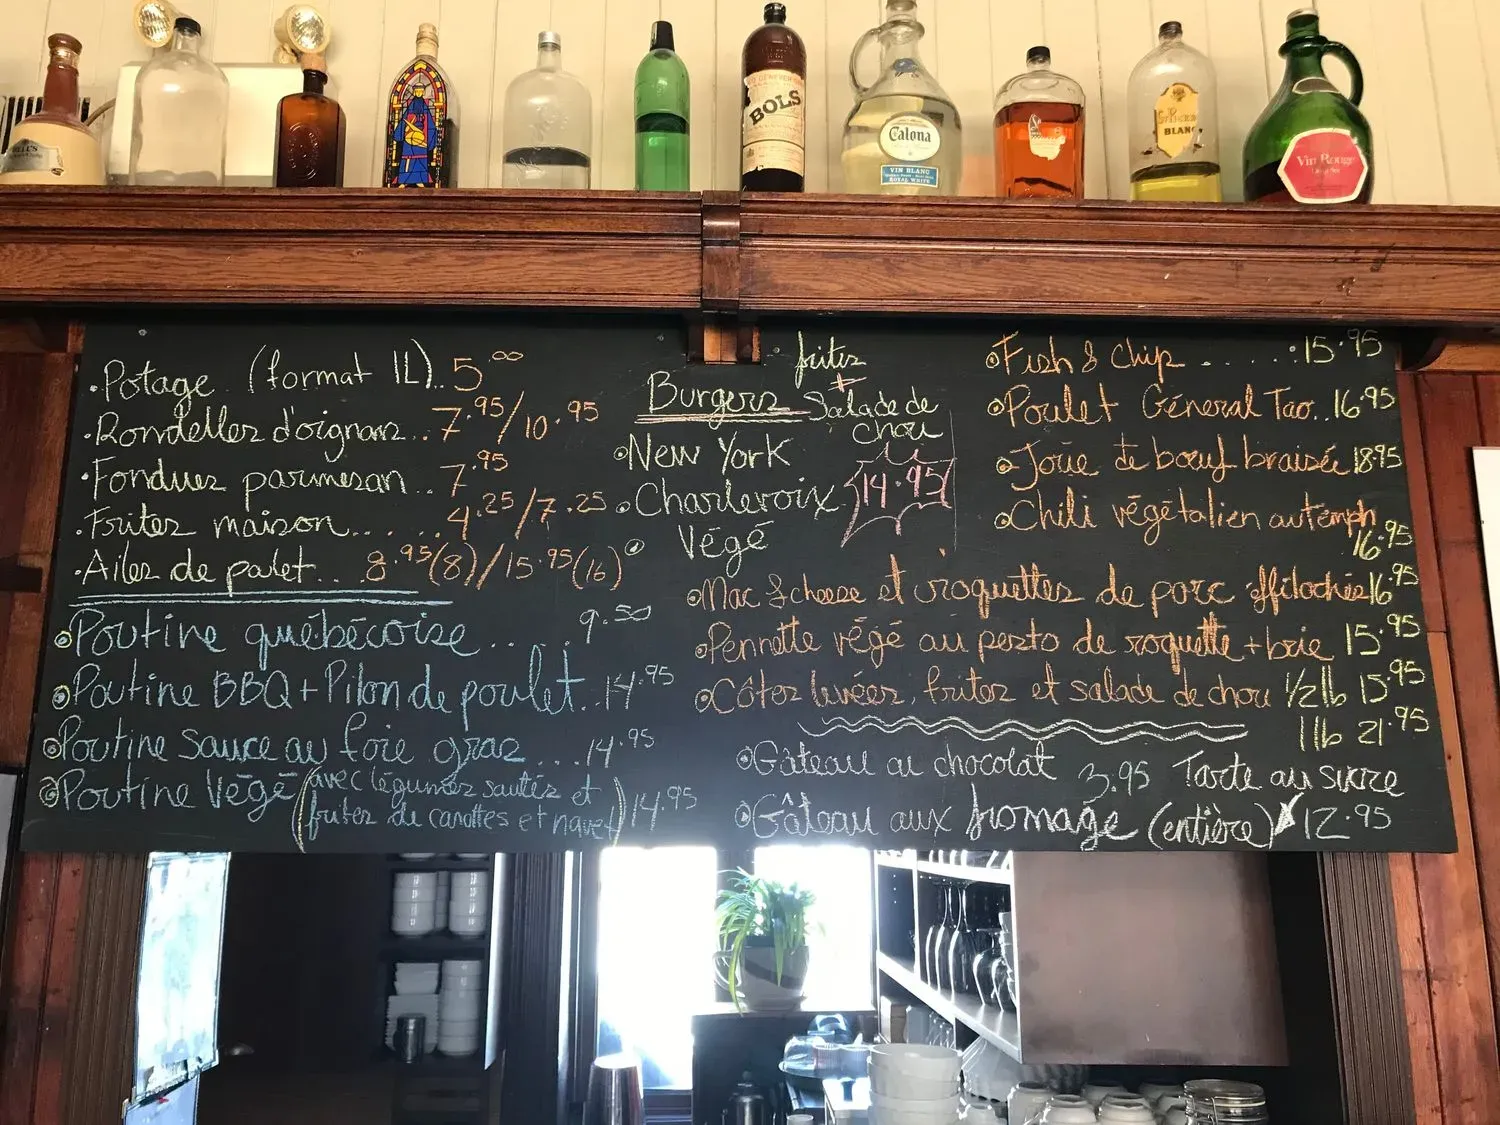 BELL'S
BOLS
Calona
VIN BLANC
ROYAL WHITE
BLANC
Vin Rouge
.Potage (format 1L)..5.00
.Rondelles d'oignons..7.95/10.95
.Fondues parmesan..7.95
.Frites maison......4.25/7.25
.Ailes de poulet...8.95(8)/15.95(16)
Poutine québécoise...9.50
Poutine BBQ+Pilon de poulet..14.95
Poutine sauce au foie gras...14.95
Poutine Végé (avec légumes sautés et
frites de carottes et navet) 14.95
frites
+
Burgers Salade de
chou
New York
Charlevoix 14.95
Végé
Fish & Chip.....:15.95
Poulet Général Tao..16.95
Joue de bœuf braisée 18.95
Chili végétalien autemph
16.95
Mac & cheese et croquettes de porc effilochés 16.95
Pennette végé au pesto de roquette + brie 15.95
Côtes levées, frites et salade de chou 1/2lb 15.95
1lb 21.95
Gâteau au chocolat 3.95 Tarte au sucre
Gâteau aux fromage (entière) 12.95